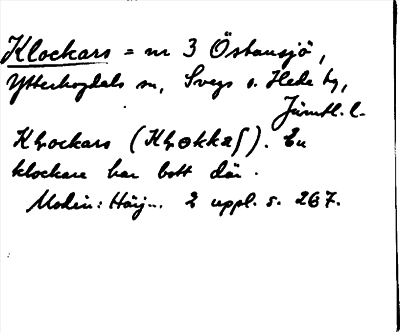 Klockars = nr 3 Östansjö,
Ytterhogdals sn, Svegs o. Hede tg,
Jämtl. l.
Kɫockars (Kɫokkaʃ). En
klockare har bott där.
Modin: Härj... 2 uppl. s. 267.